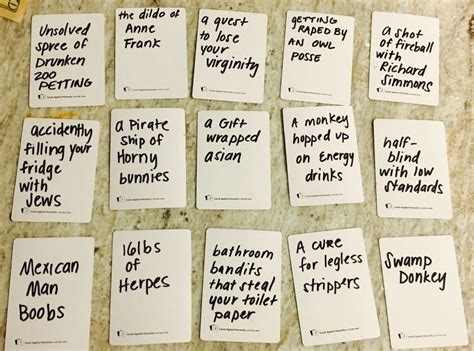 Unsolved
spree of
Drunken
ZOO
PETTING
the dildo of
Anne
Frank
a quest
to lose
your
virginity
gETTING
RAPED BY
AN OWL
POSSE
a shot
of fireball
with
Richard
Simmons
accidently
filling your
fridge
with
Jews
a Pirate
Ship of
Horny
bunnies
a Gift
wrapped
asian
A monkey
hopped up
on Energy
drinks
half-
blind
with low
Standards
Mexican
Man
Boobs
16lbs
of
Herpes
bathroom
bandits
that steal
your toilet
paper
A CURE
for legless
strippers
Swamp
Donkey